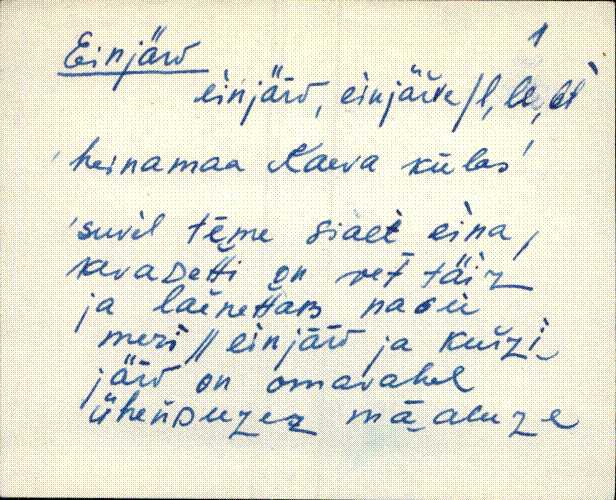 1
Einjärv
einjärv, einjärve/l, le, lt
'heinamaa Kaeva külas'
'suvil tēme siält eina,
kevaDetti on vet täiz
ja laenettaB nagu
meri // einjärv ja kuřzi-
järv on omavahel
ühenDuzez mā-aluze